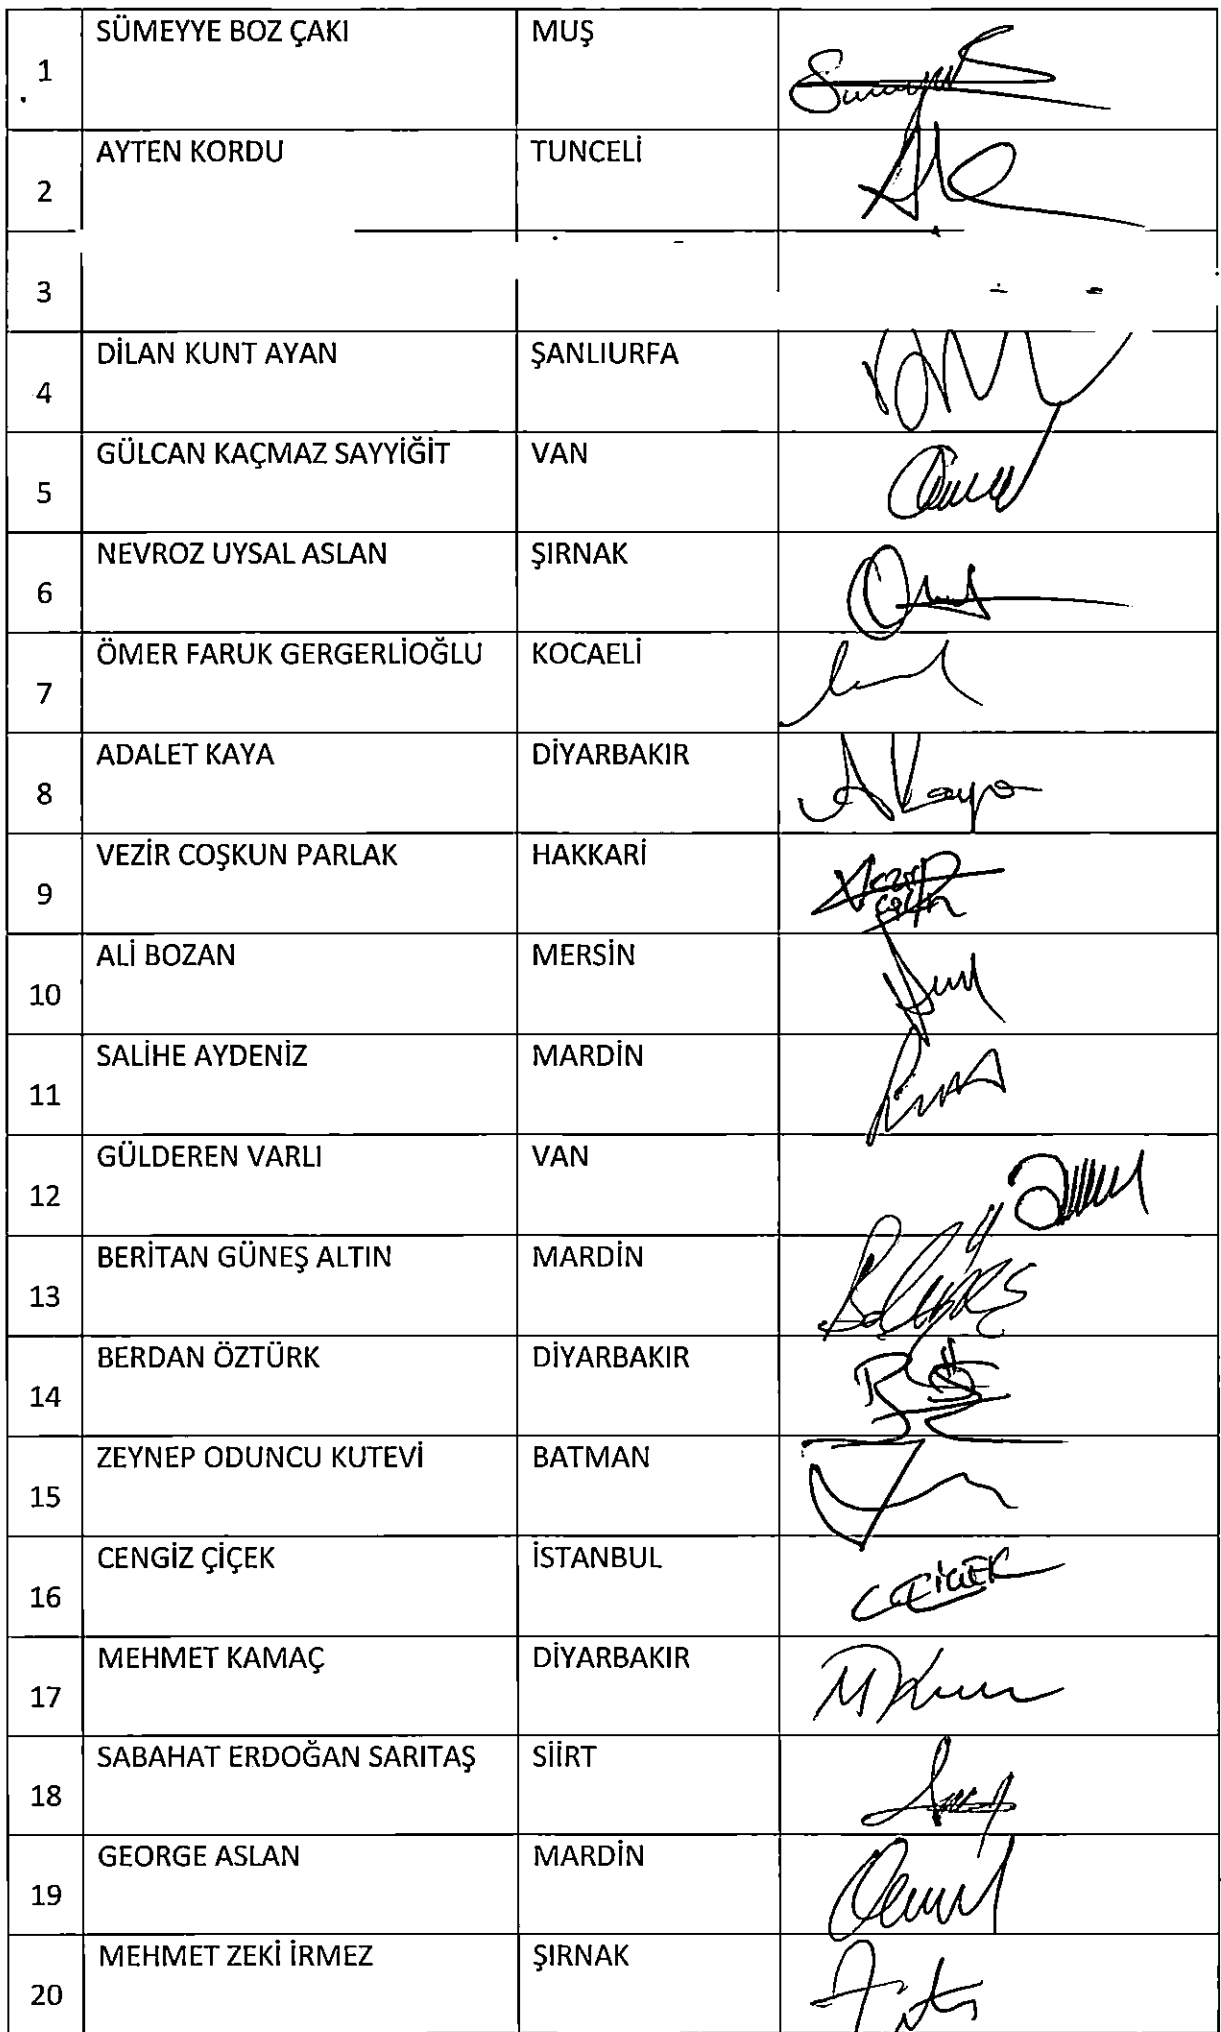 1 SÜMEYYE BOZ ÇAKI MUŞ
2 AYTEN KORDU TUNCELİ
3
4 DİLAN KUNT AYAN ŞANLIURFA
5 GÜLCAN KAÇMAZ SAYYİĞİT VAN
6 NEVROZ UYSAL ASLAN ŞIRNAK
7 ÖMER FARUK GERGERLİOĞLU KOCAELİ
8 ADALET KAYA DİYARBAKIR A Kaya
9 VEZİR COŞKUN PARLAK HAKKARİ
10 ALİ BOZAN MERSİN
11 SALİHE AYDENİZ MARDİN
12 GÜLDEREN VARLI VAN
13 BERİTAN GÜNEŞ ALTIN MARDİN
14 BERDAN ÖZTÜRK DİYARBAKIR
15 ZEYNEP ODUNCU KUTEVİ BATMAN
16 CENGİZ ÇİÇEK İSTANBUL C ÇİÇEK
17 MEHMET KAMAÇ DİYARBAKIR
18 SABAHAT ERDOĞAN SARITAŞ SİİRT
19 GEORGE ASLAN MARDİN
20 MEHMET ZEKİ İRMEZ ŞIRNAK